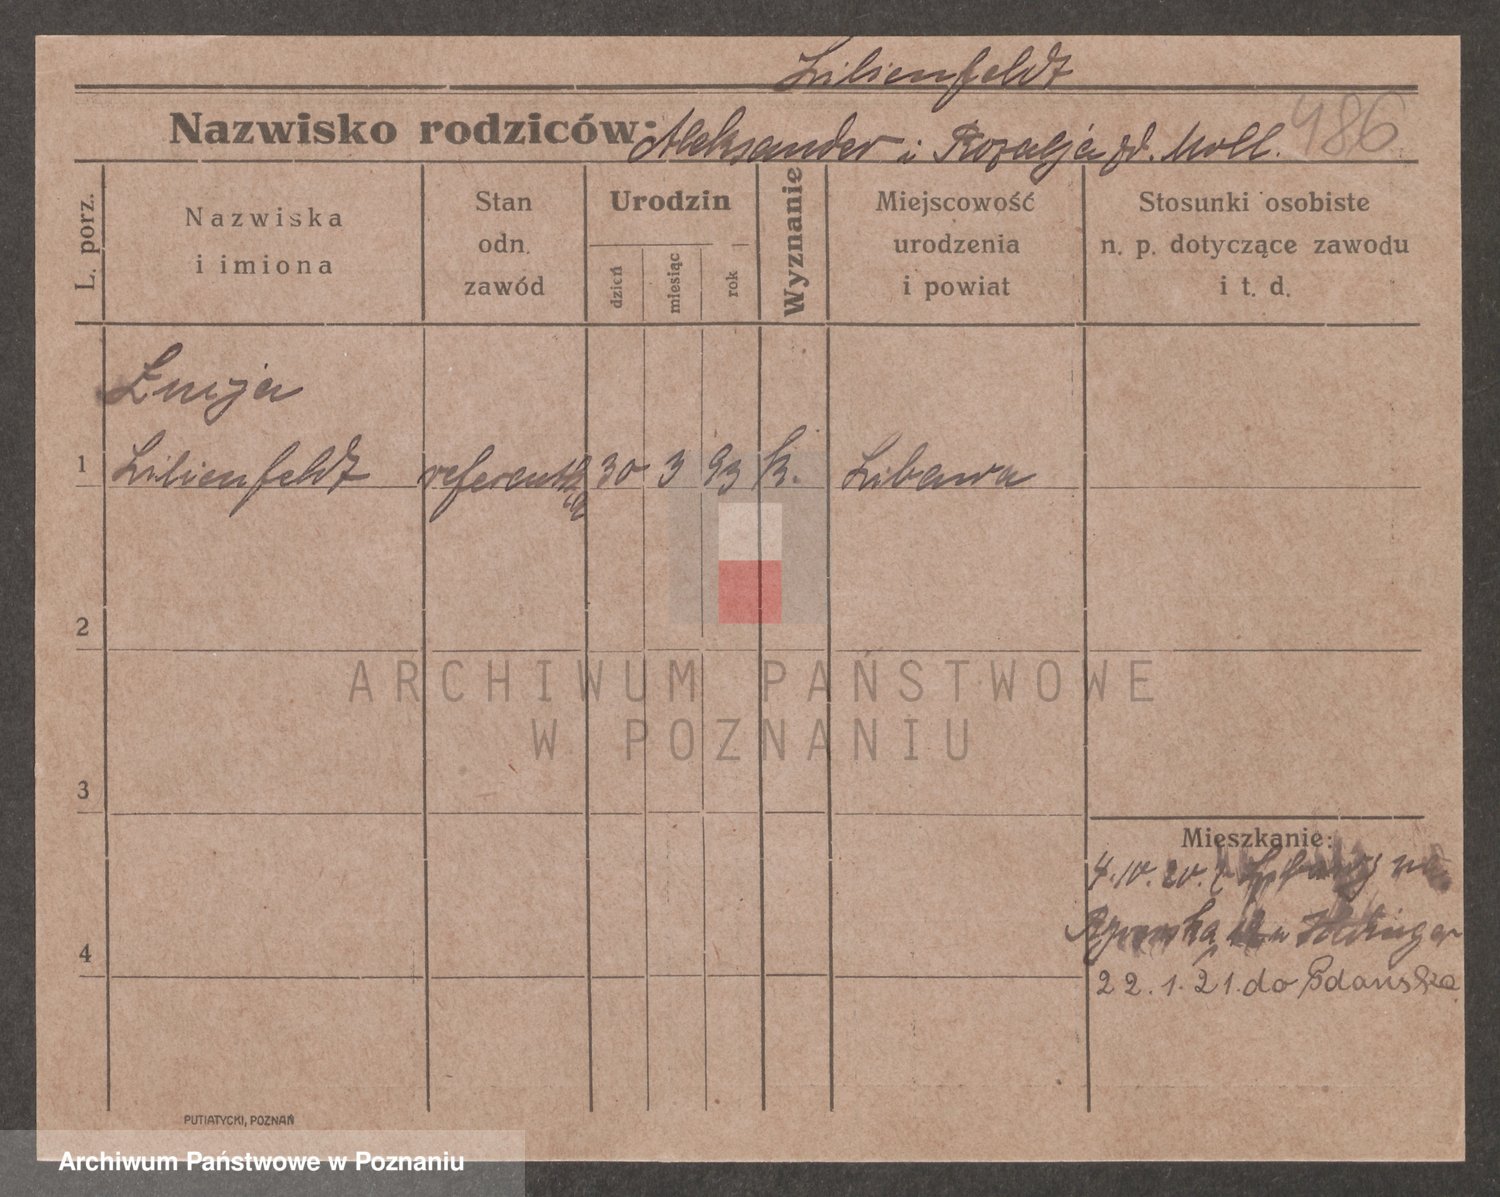 Lilienfeldt
Nazwisko rodziców: Aleksander i Rozalja zd. Moll. 486
L. porz.
Nazwiska
i imiona
Stan
odn.
zawód
Urodzin
dzień
miesiąc
rok
Wyznanie
Miejscowość
urodzenia
i powiat
Stosunki osobiste
n. p. dotyczące zawodu
i t. d.
Łucja
1 Lilienfeldt referentka 30 3 93 k. Libawa
2
ARCHIWUM PAŃSTWOWE
W POZNANIU
3
Mieszkanie:
4.10.20. z na
4
22.1.21. do Gdańska
PUTIATYCKI, POZNAŃ
Archiwum Państwowe w Poznaniu